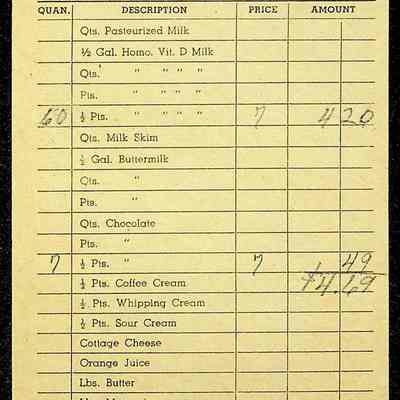 QUAN. DESCRIPTION PRICE AMOUNT
Qts. Pasteurized Milk
½ Gal. Homo. Vit. D Milk
Qts. " " " "
Pts. " " " "
60 ½ Pts. " " " " 7 4 20
Qts. Milk Skim
½ Gal. Buttermilk
Qts. "
Pts. "
Qts. Chocolate
Pts. "
7 ½ Pts. " 7 49
½ Pts. Coffee Cream 4.69
½ Pts. Whipping Cream
½ Pts. Sour Cream
Cottage Cheese
Orange Juice
Lbs. Butter